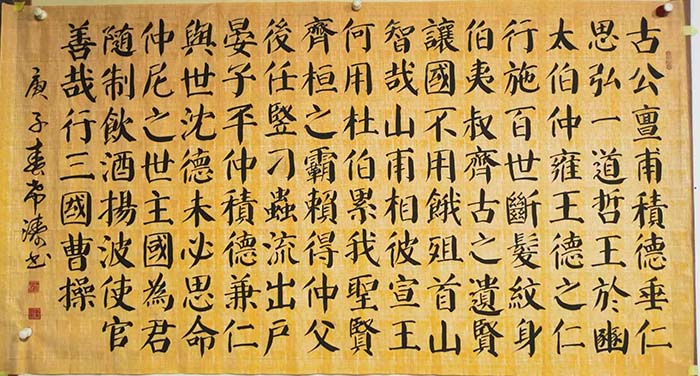 古公亶甫積德垂仁
思弘一道哲王於豳
太伯仲雍王德之仁
行施百世斷髮紋身
伯夷叔齊古之遺賢
讓國不用餓殂首山
智哉山甫相彼宣王
何用杜伯累我聖賢
齊桓之霸賴得仲父
後任豎刁蟲流出戶
晏子平仲積德兼仁
與世沈德未必思命
仲尼之世主國為君
隨制飲酒揚波使官
善哉行三國曹操
庚子春濤书